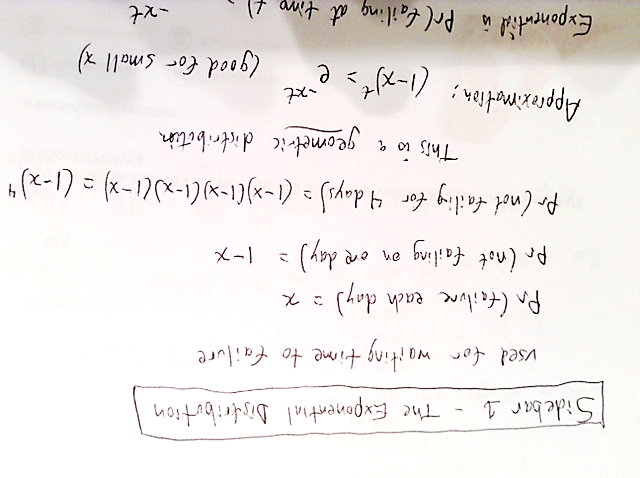 Sidebar 1 - The Exponential Distribution
used for waiting time to failure
Pr(failure each day) = x
Pr(not failing on one day) = 1-x
Pr(not failing for 4 days) = (1-x)(1-x)(1-x)(1-x) = (1-x)^4
This is a geometric distribution
Approximation: (1-x)^t = e^-xt (good for small x)
Exponential is Pr(failing at time t) -xt